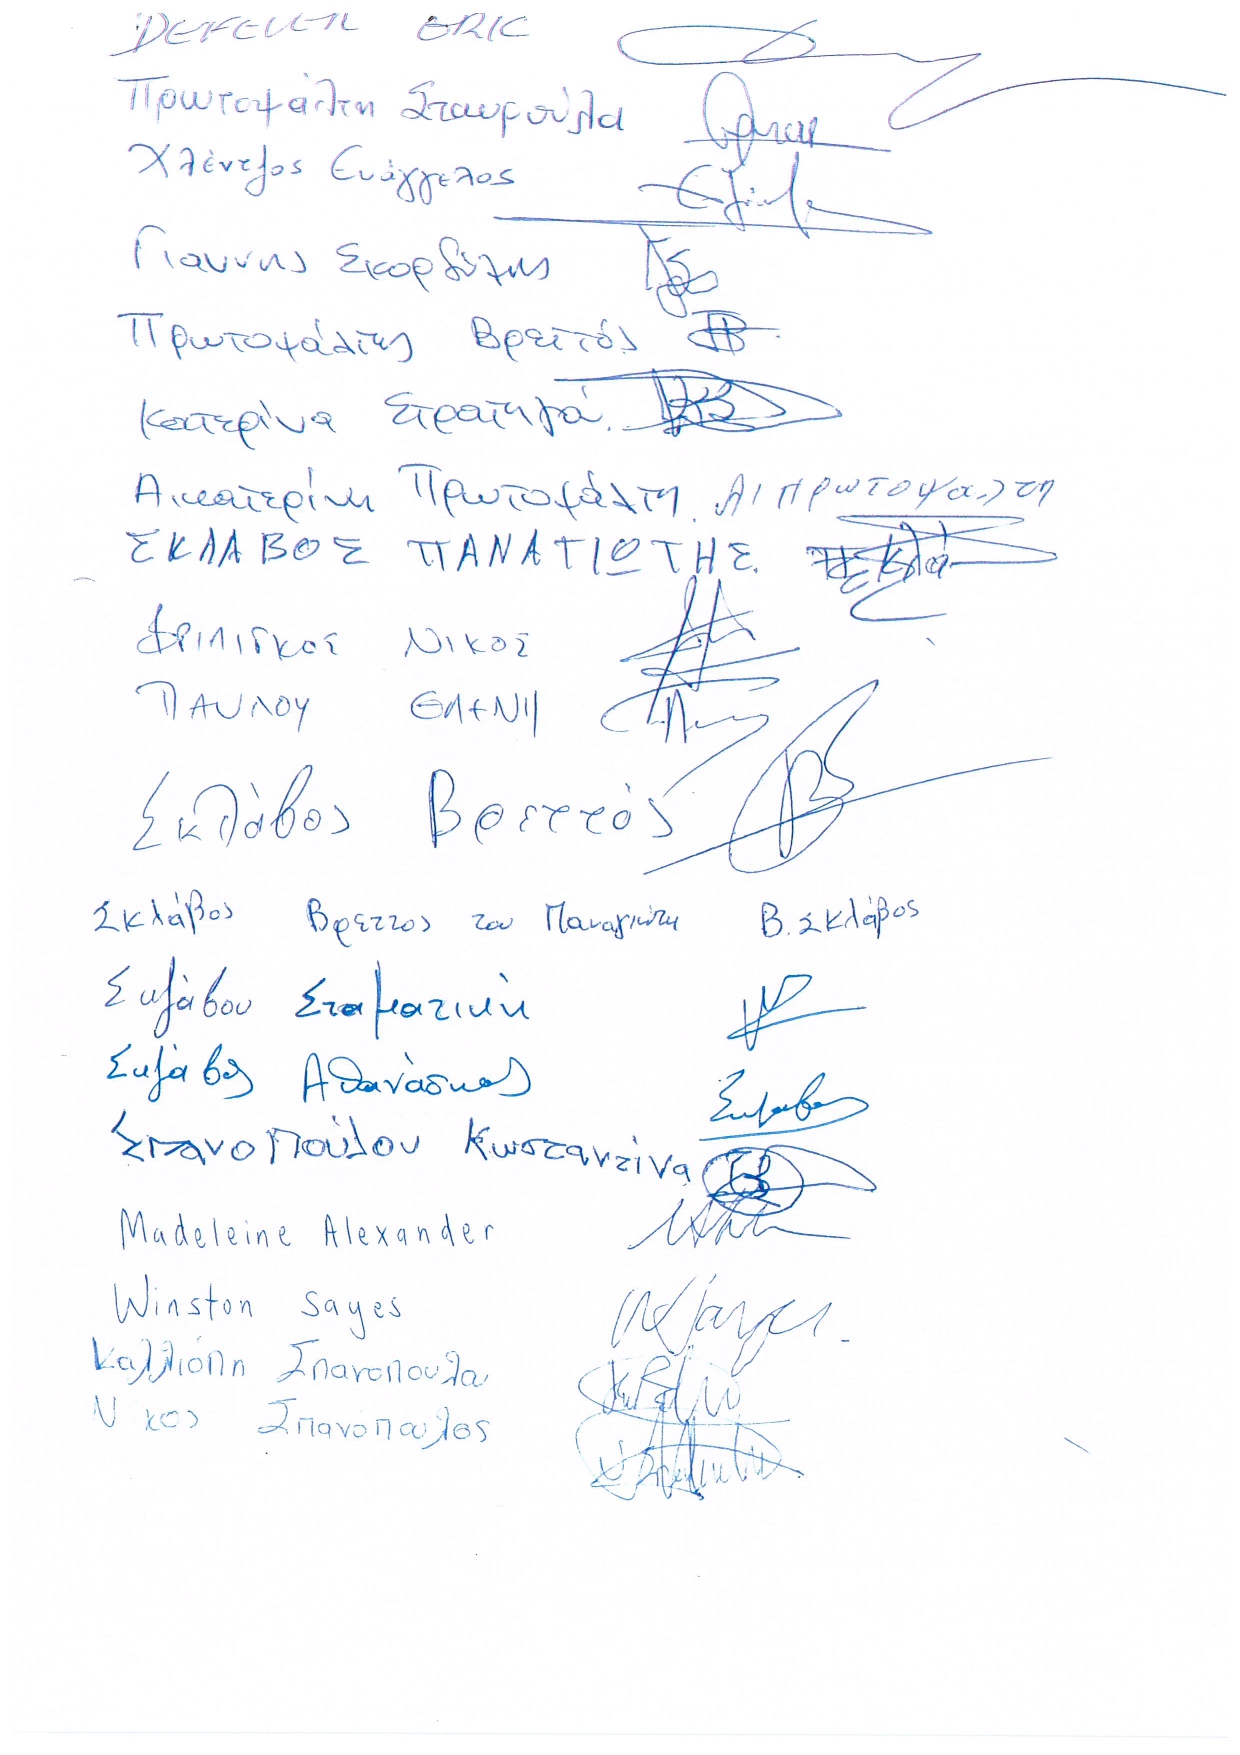 ERIC
Πρωτοψάλτη Σταυρούλα
Χλέντζος Ευάγγελος
Γιαννης Σκορδίλης
Πρωτοψάλτης Βρεττός
Κατερίνα Στρατηγά.
Αικατερίνη Πρωτοψάλτη. Αι πρωτοψαλτη
ΣΚΛΑΒΟΣ ΠΑΝΑΓΙΩΤΗΣ.
ΝΙΚΟΣ
ΠΑΥΛΟΥ ΕΛΕΝΗ
Σκλάβος Βρεττός
Σκλάβος Βρεττος του Παναγιώτη Β. Σκλάβος
Σκλάβου Σταματική
Σκλάβος Αθανάσιος Σκλαβος
Σπανοπούλου Κωσταντίνα
Madeleine Alexander
Winston Sayes
Καλλιόπη Σπανοπουλα
Νικος Σπανόπουλος